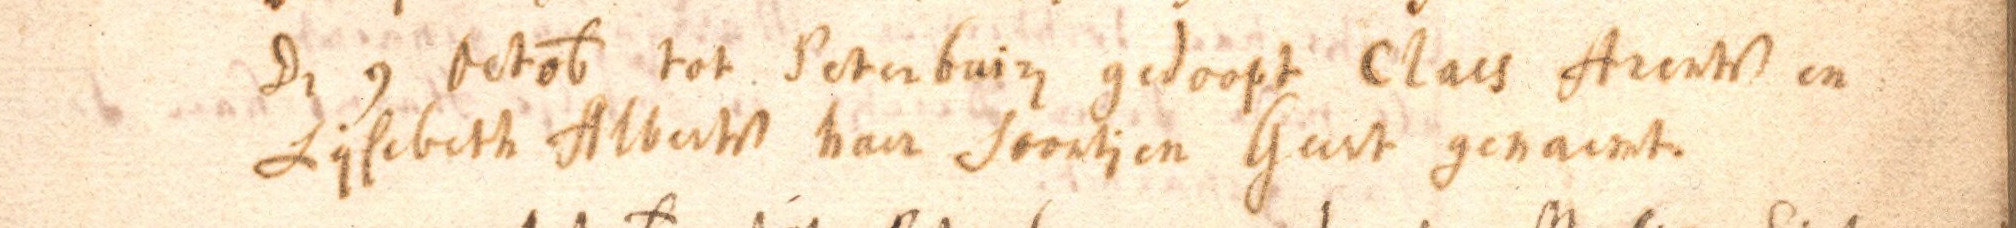 Dr 9 Octob tot Peterbuir gedoopt Claes Arents en
Lijsebeth Alberts haer Soontjen Geert genaemt.